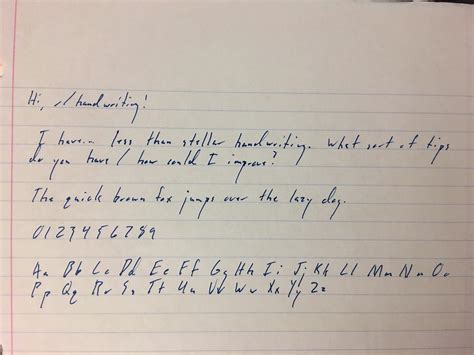 Hi, r/handwriting!
I have... less than stellar handwriting. What sort of tips
do you have / how could I improve?
The quick brown fox jumps over the lazy dog.
0123456789
Aa Bb Cc Dd Ee Ff Gg Hh Ii Jj Kk Ll Mm Nn Oo
Pp Qq Rr Ss Tt Uu Vv Ww Xx Yy Zz